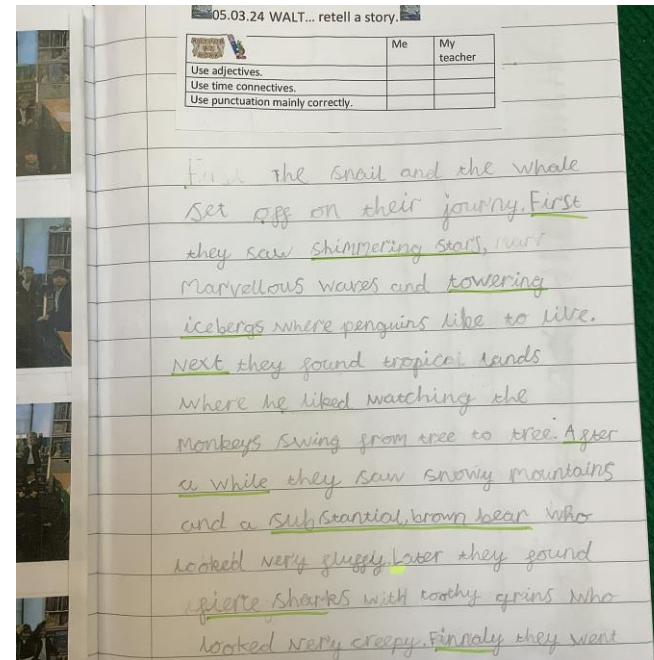 05.03.24 WALT... retell a story.
Me My teacher
Use adjectives.
Use time connectives.
Use punctuation mainly correctly.
The snail and the whale
set off on their journy. First
they saw shimmering stars,
marvellous waves and towering
icebergs where penguins like to live.
Next they found tropical lands
where he liked watching the
monkeys swing from tree to tree. After
a while they saw snowy mountains
and a substantial, brown bear who
looked very fluffy. Later they found
fierte sharks with toothy grins who
looked very creepy. Finnaly they went